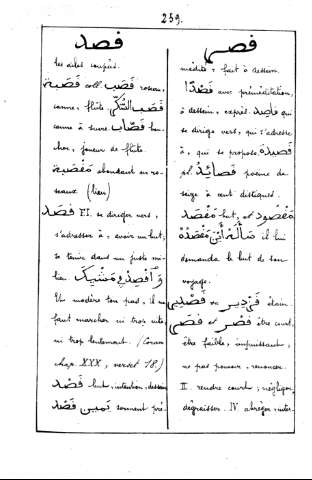 239.
فصد
les ailes coupées.
قَصَبة coll. قَصَب roseau,
canne, flûte. قَصَب السُّكَّر
canne à sucre قَصّاب bou-
cher, joueur de flûte.
مَقْصَبة abondant en ro-
seaux (lieu)
قصَد F.I. se diriger vers,
s'adresser à, avoir un but,
se tenir dans un juste mi-
lieu وَٱقْصِد في مَشْيِكَ
Un modère ton pas, il ne
faut marcher ni trop vite,
ni trop lentement. (Coran
chap. XXX, verset 18.)
قَصْد but, intention, dessein
يَمين قَصْد serment pré-
قصر
médité, fait à dessein.
قَصْدًا avec préméditation,
à dessein, exprès. قاصِد qui
se dirige vers, qui s'adresse
à, qui se propose قَصيدة
pl. قَصائِد poème de
seize à cent distiques.
مَقْصَد but, et مَقْصُود
سَأَلَهُ أَيْنَ مَقْصَدُهُ il lui
demanda le but de son
voyage.
قَزْدير ou قَصْدير étain.
قَصُر et قَصَر être court,
être faible, impuissant,
ne pas pouvoir, renoncer.
II rendre court, négliger,
dégraisser. IV abréger, inter-